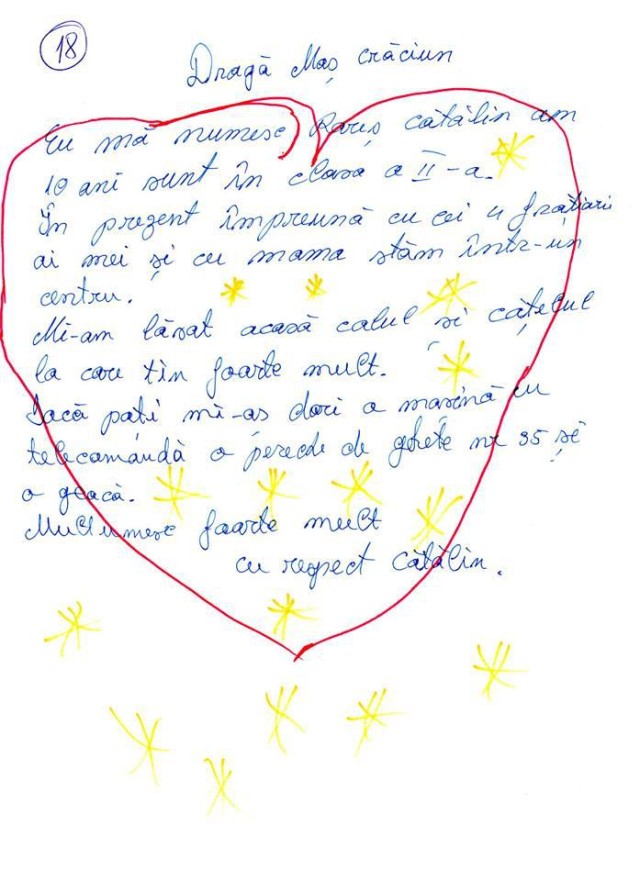 18
Dragă Moș crăciun
Eu mă numesc Rareș cătălin am
10 ani sunt în clasa a II-a.
În prezent împreună cu cei 4 frățiori
ai mei și cu mama stăm într-un
centru.
Mi-am lăsat acasă calul și cățelul
la care țin foarte mult.
Dacă poți mi-as dori o mașină cu
telecomandă o pereche de ghete nr 35 și
o geacă.
Mulțumesc foarte mult
cu respect cătălin.